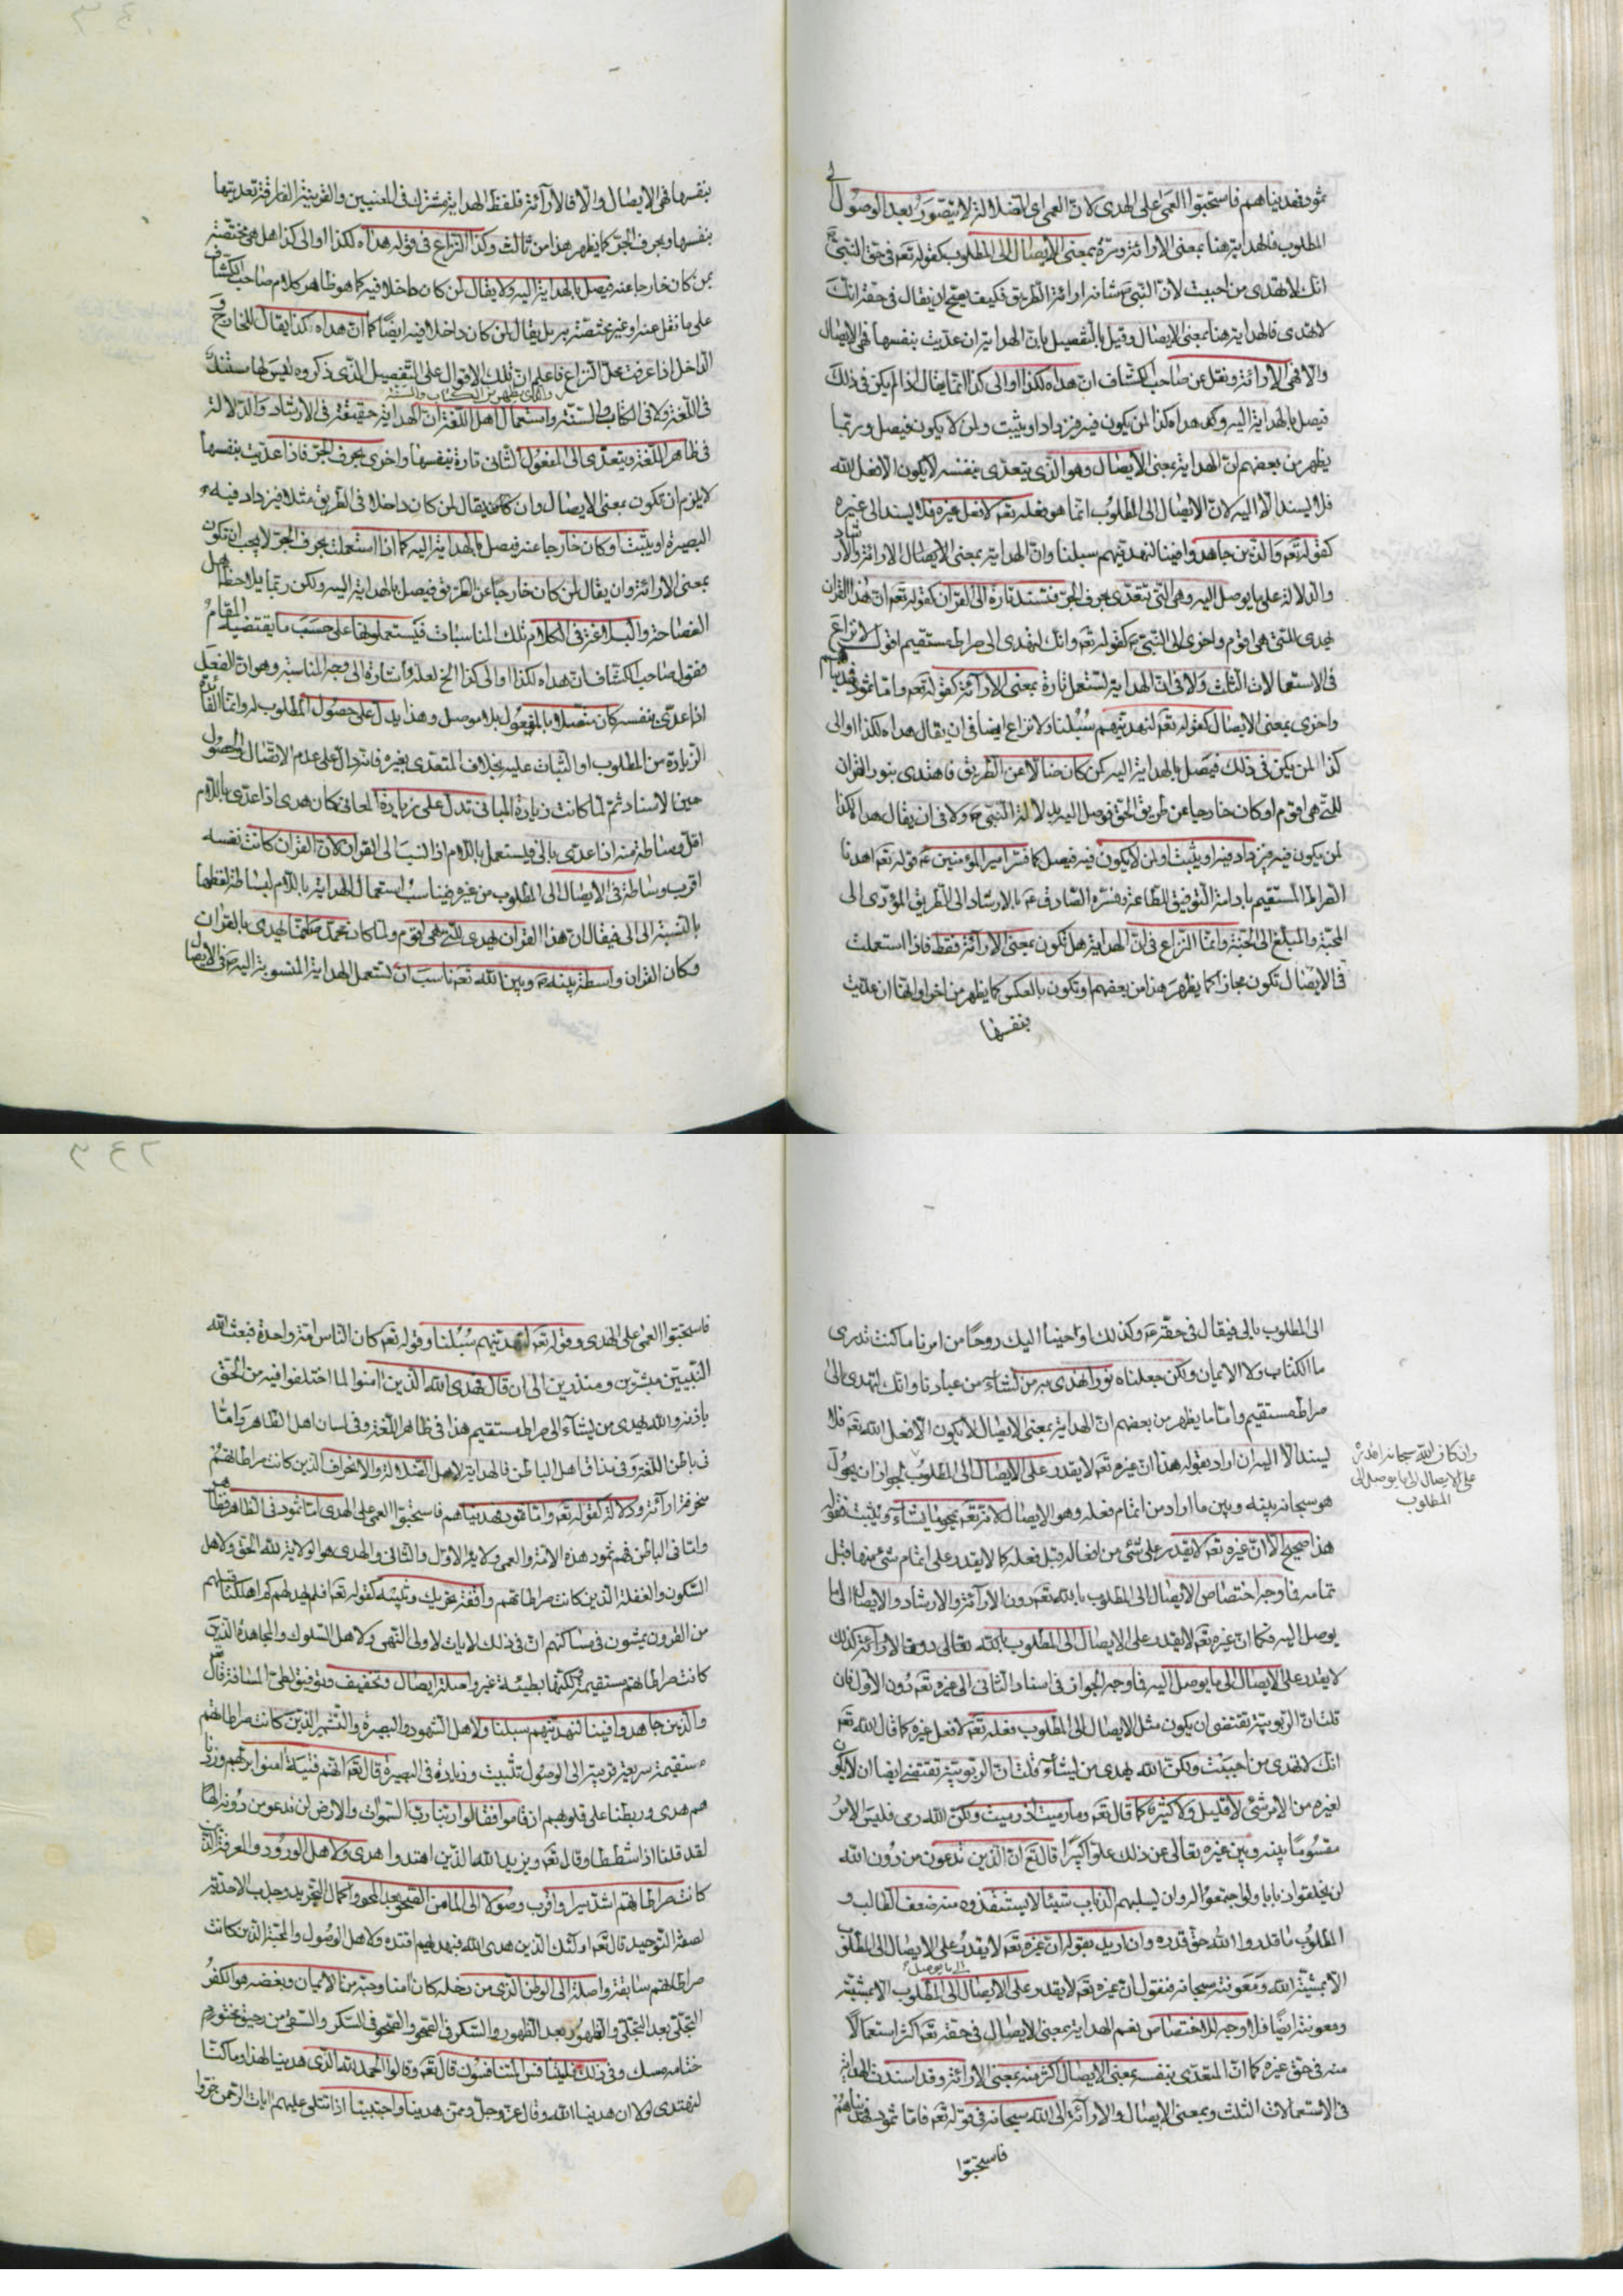 ثمود فهديناهم فاستحبوا العمى على الهدى لان العمى اي الضلالة لا يتصور بعد الوصول الى
المطلوب فالهداية هنا بمعنى الاراءة ومرة بمعنى الايصال الى المطلوب كقوله تعم في حق النبي
انك لا تهدي من احببت لان النبي شانه اراءة الطريق فكيف يصح ان يقال في حقه انك
لا تهدي فالهداية هنا بمعنى الايصال وقيل بالتفصيل بان الهداية ان عديت بنفسها فهي الايصال
والا فهي الاراءة ونقل عن صاحب الكشاف ان هداه لكذا او الى كذا انما يقال اذا لم يكن في ذلك
فيصل بالهداية اليه وهداه كذا لمن يكون فيه فيزداد او يثبت ولمن لا يكون فيصل وربما
يظهر من بعضهم ان الهداية بمعنى الايصال وهو الذي يتعدى بنفسه لا يكون الا فعل الله
فلا يسند الا اليه لان الايصال الى المطلوب انما هو فعله تعم لا فعل غيره فلا يسند الى غيره
كقوله تعم والذين جاهدوا فينا لنهدينهم سبلنا وان الهداية بمعنى الايصال الاراءة والارشاد
والدلالة على ما يوصل اليه وهي التي تتعدى بحرف الجر فتسند تارة الى القران كقوله تعم ان هذا القران
يهدي للتي هي اقوم واخرى الى النبي كقوله تعم وانك لتهدي الى صراط مستقيم اقول لا نزاع
في الاستعمالات الثلث ولا في ان الهداية تستعمل تارة بمعنى الاراءة كقوله تعم واما ثمود فهديناهم
واخرى بمعنى الايصال كقوله تعم لنهدينهم سبلنا ولا نزاع ايضا في ان يقال هداه لكذا او الى
كذا لمن يكن في ذلك فيصل بالهداية اليه كمن كان ضالا عن الطريق فاهتدى بنور القران
للتي هي اقوم او كان خارجا عن طريق الحق فوصل اليه بدلالة النبي ولا في ان يقال هداه كذا
لمن يكون فيه فيزداد فيه او يثبت ولمن لا يكون فيه فيصل كما فسر امير المؤمنين ع قوله تعم اهدنا
الصراط المستقيم بادامة التوفيق للطاعة وفسره الصادق ع بالارشاد الى الطريق المؤدي الى
المحبة والمبلغ الى الجنة وانما النزاع في ان الهداية هل تكون بمعنى الاراءة فقط فاذا استعملت
في الايصال تكون مجازا كما يظهر هذا من بعضهم او تكون بالعكس كما يظهر من اخر او انها ان عديت
بنفسها
بنفسها فهي الايصال والا فالاراءة فلفظ الهداية مشترك في المعنيين والقرينة الفارقة تعديتها
بنفسها وبحرف الجر كما يظهر هذا من ثالث وكذا النزاع في قوله هداه لكذا او الى كذا هل هي مختصة
بمن كان خارجا عنه فيصل بالهداية اليه ولا يقال لمن كان داخلا فيه كما هو ظاهر كلام صاحب الكشاف
على ما نقل عنه او غير مختصة به بل يقال لمن كان داخلا فيه ايضا كما ان هداه كذا يقال للخارج و
الداخل اذا عرفت محل النزاع فاعلم ان تلك الاقوال على التفصيل الذي ذكروه ليس لها مستند
والذي يظهر من الكتاب والسنة
في اللغة ولا في الكتاب والسنة واستعمال اهل اللغة ان الهداية حقيقة في الارشاد والدلالة
في ظاهر اللغة ويتعدى الى المفعول الثاني تارة بنفسها واخرى بحرف الجر فاذا عديت بنفسها
لا يلزم ان تكون بمعنى الايصال وان كان يقال لمن كان داخلا في الطريق مثلا فيزداد فيه
البصيرة او يثبت او كان خارجا عنه فيصل بالهداية اليه كما اذا استعملت بحرف الجر لا يجب ان تكون
بمعنى الاراءة وان يقال لمن كان خارجا عن الطريق فيصل بالهداية اليه ولكن ربما يلاحظ اهل
الفصاحة والبلاغة في الكلام تلك المناسبات فيستعملونها على حسب ما يقتضيه المقام
فقول صاحب الكشاف ان هداه لكذا او الى كذا الخ لعله اشارة الى وجه المناسبة وهو ان الفعل
اذا عدى بنفسه كان متصلا بالمفعول بلا موصل وهذا يدل على حصول المطلوب له وانما الفائدة
الزيادة من المطلوب او الثبات عليه بخلاف المتعدى بغيره فانه دال على عدم الاتصال والحصول
حين الاسناد ثم لما كانت زيادة المباني تدل على زيادة المعاني كان هدى اذا عدى باللام
اقل وساطة منه اذا عدى بالى ويستعمل باللام اذا نسب الى القران لان القران كانت نفسه
اقرب وساطة في الايصال الى المطلوب من غيره فيناسب استعمال الهداية باللام لبساطة لفظها
بالنسبة الى الى فيقال ان هذا القران يهدي للتي هي اقوم ولما كان محمد صلعم انما يهدي بالقران
وكان القران واسطة بينه وبين الله تعم ناسب ان تستعمل الهداية المنسوبة اليه في الايصال
الى المطلوب بالى فيقال في حقه ع وكذلك اوحينا اليك روحا من امرنا ما كنت تدري
ما الكتاب ولا الايمان ولكن جعلناه نورا نهدي به من نشاء من عبادنا وانك لتهدي الى
صراط مستقيم واما ما يظهر من بعضهم ان الهداية بمعنى الايصال لا يكون الا فعل الله تعم فلا
يسند الا اليه ان اراد بقوله هذا ان غيره تعم لا يقدر على الايصال الى المطلوب لجواز ان يحول
وان كان الله سبحانه اقدره
على الايصال الى ما يوصل الى
المطلوب
هو سبحانه بينه وبين ما اراد من اتمام فعله وهو الايصال لانه تعم يمحو ما يشاء ويثبت فقوله
هذا صحيح الا ان غيره تعم لا يقدر على شئ من افعاله قبل فعله كما لا يقدر على اتمام شئ منها قبل
تمامه فما وجه اختصاص الايصال الى المطلوب بالله تعم دون الاراءة والارشاد والايصال الى ما
يوصل اليه فكما ان غيره تعم لا يقدر على الايصال الى المطلوب بالله تعالى دون الاراءة كذلك
لا يقدر على الايصال الى ما يوصل اليه فما وجه الجواز في اسناد الثاني الى غيره تعم دون الاول فان
قلت ان الربوبية تقتضي ان يكون مثل الايصال الى المطلوب فعله تعم لا فعل غيره كما قال الله تعم
انك لا تهدي من احببت ولكن الله يهدي من يشاء قلت ان الربوبية تقتضي ايضا ان لا يكون
لغيره من الامر شئ لا قليل ولا كثير كما قال تعم وما رميت اذ رميت ولكن الله رمى فليس الامر
مقسوما بينه وبين غيره تعالى عن ذلك علوا كبيرا قال تعم ان الذين تدعون من دون الله
لن يخلقوا ذبابا ولو اجتمعوا له وان يسلبهم الذباب شيئا لا يستنقذوه منه ضعف الطالب و
المطلوب ما قدروا الله حق قدره وان اريد بقوله ان غيره تعم لا يقدر على الايصال الى المطلوب
الى ما يوصل
الا بمشية الله ومعونته سبحانه فنقول ان غيره تعم لا يقدر على الايصال الى المطلوب الا بمشيته
ومعونته ايضا فلا وجه للاختصاص نعم الهداية بمعنى الايصال في حقه تعم اكثر استعمالا
منه في حق غيره كما ان المتعدى بنفسه بمعنى الايصال اكثر منه بمعنى الاراءة وقد اسندت الهداية
في الاستعمالات الثلث وبمعنى الايصال والاراءة الى الله سبحانه في قوله تعم فاما ثمود فهديناهم
فاستحبوا
فاستحبوا العمى على الهدى وقوله تعم لنهدينهم سبلنا وقوله تعم كان الناس امة واحدة فبعث الله
النبيين مبشرين ومنذرين الى ان قال فهدى الله الذين امنوا لما اختلفوا فيه من الحق
باذنه والله يهدي من يشاء الى صراط مستقيم هذا في ظاهر اللغة وفي لسان اهل الظاهر واما
في باطن اللغة وفي مذاق اهل الباطن فالهداية لاهل الضلالة والانحراف الذين كانت صراطاتهم
منحرفة اراءة ودلالة كقوله تعم واما ثمود فهديناهم فاستحبوا العمى على الهدى اما ثمود في الظاهر فظاهر
واما في الباطن فهم ثمود هذه الامة والعمى ولاية الاول والثاني والهدى هو الولاية لله الحق ولاهل
السكون والغفلة الذين كانت صراطاتهم واقفة تحريك وتنبيه كقوله تعم افلم يهد لهم كم اهلكنا قبلهم
من القرون يمشون في مساكنهم ان في ذلك لايات لاولي النهى ولاهل السلوك والمجاهدة الذين
كانت صراطاتهم مستقيمة لكنها بطيئة غير واصلة ايصال وتخفيف وتوفيق لطي المسافة قال تعم
والذين جاهدوا فينا لنهدينهم سبلنا ولاهل الشهود والبصيرة والتشمر الذين كانت صراطاتهم
مستقيمة سريعة قريبة الى الوصول تثبيت وزيادة في البصيرة قال تعم انهم فتية امنوا بربهم وزدنا
هم هدى وربطنا على قلوبهم اذ قاموا فقالوا ربنا رب السموات والارض لن ندعو من دونه الها
لقد قلنا اذا شططا وقال تعم ويزيد الله الذين اهتدوا هدى ولاهل الورود والمعرفة الذين
كانت صراطاتهم اشد سيرا واقرب وصولا الى المامن الصحو بعد المحو واكمال التجريد وجذب الاحدية
لصفة التوحيد قال تعم اولئك الذين هدى الله فبهديهم اقتده ولاهل الوصول والمحبة الذين كانت
صراطاتهم سابقة واصلة الى الوطن الذي من دخله كان امنا وحبه من الايمان وبغضه هو الكفر
التجلي بعد التجلي والظهور بعد الظهور والسكر في الصحو والصحو في السكر والسقي من رحيق مختوم
ختامه مسك وفي ذلك فليتنافس المتنافسون قال تعم وقالوا الحمد لله الذي هدينا لهذا وما كنا
لنهتدي لولا ان هدينا الله وقال عز وجل وممن هدينا واجتبينا اذا تتلى عليهم ايات الرحمن خروا